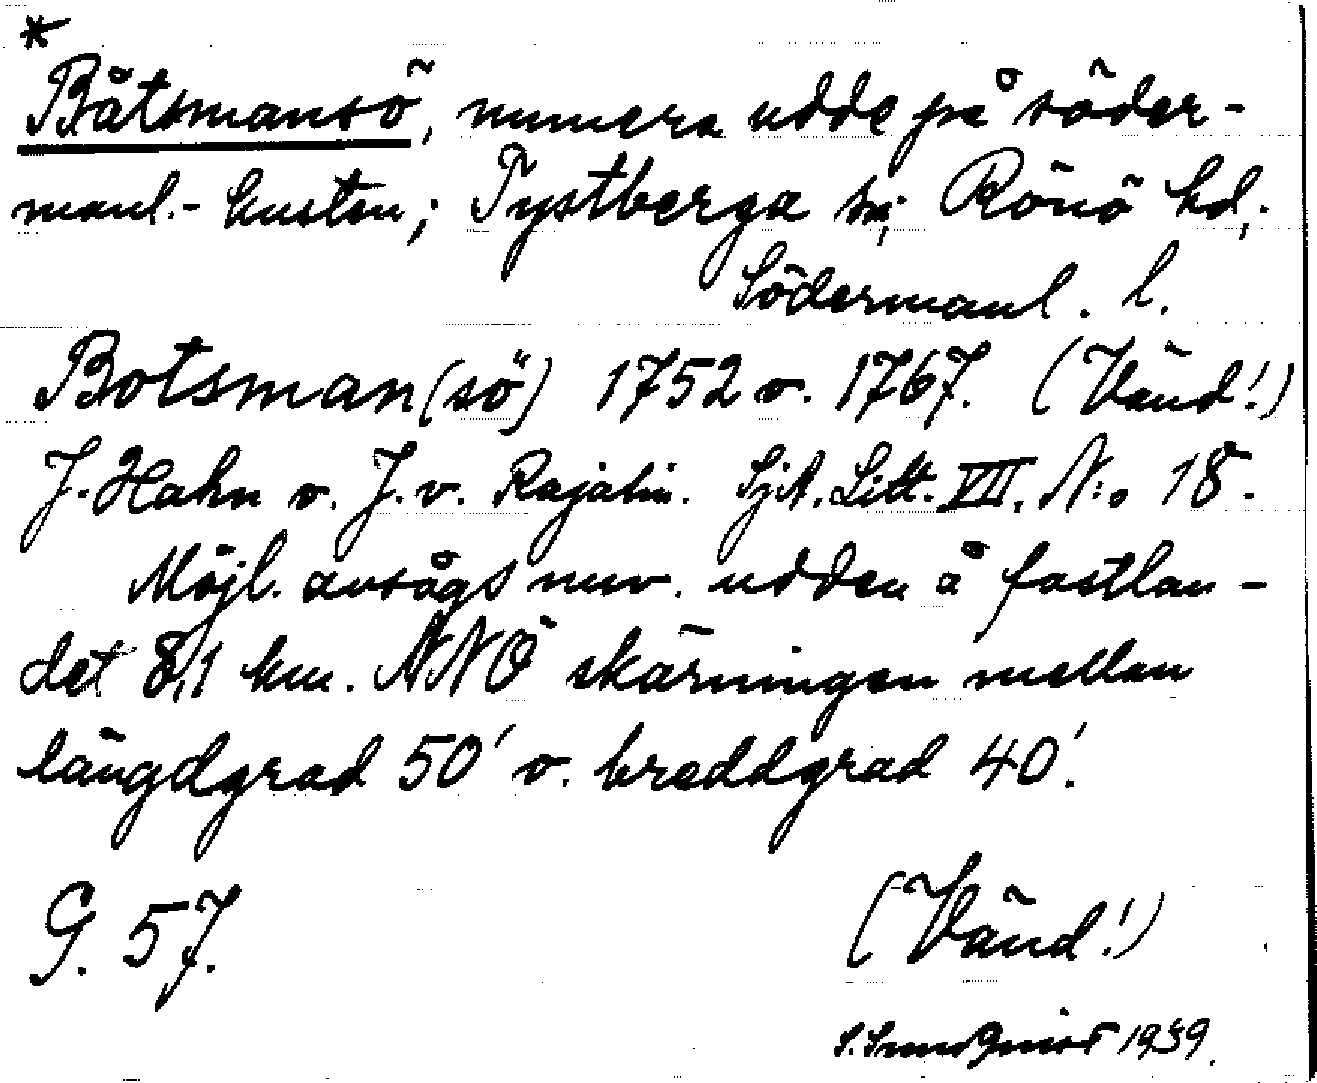 *
Båtsmansö, numera udde på söder-
manl.- kusten; Tystberga sn; Rönö hd,.
Södermanl. l.
Botsman(sö) 1752 o. 1767. (Vänd!)
J. Hahn o. J. v. Rajalin. SjA. Litt. VII. N:o 18.
Möjl. avsågs nuv. udden å fastlan-
det 8,1 km. NNÖ skärningen mellan
längdgrad 50' o. breddgrad 40'.
G. 57. (Vänd!)
S. Sundqvist 1939.